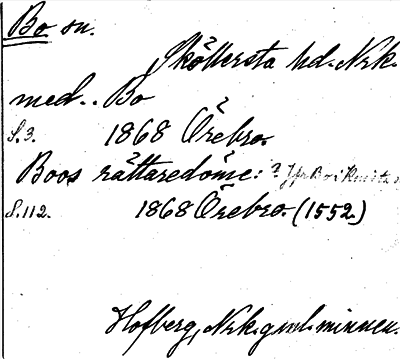 Bo sn.
Sköllersta hd. Nrk.
med.. Bo
S.3. 1868 Örebro.
Boos rättaredöme: ? Jfr Bo i Knista
S.112. 1868 Örebro. (1552)
Hofberg, Nrk. gml. minnen.